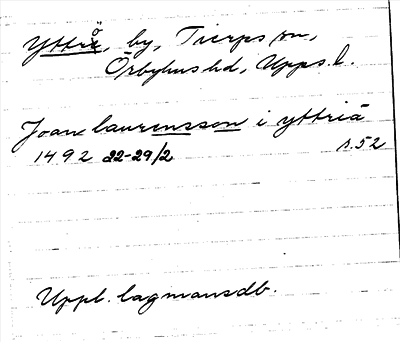 Yttrö, by, Tierps sn,
Örbyhus hd, Upps. l.
Joan laurensson i yttriä
1492 22-29/2 s. 52
Uppl. lagmansdb.